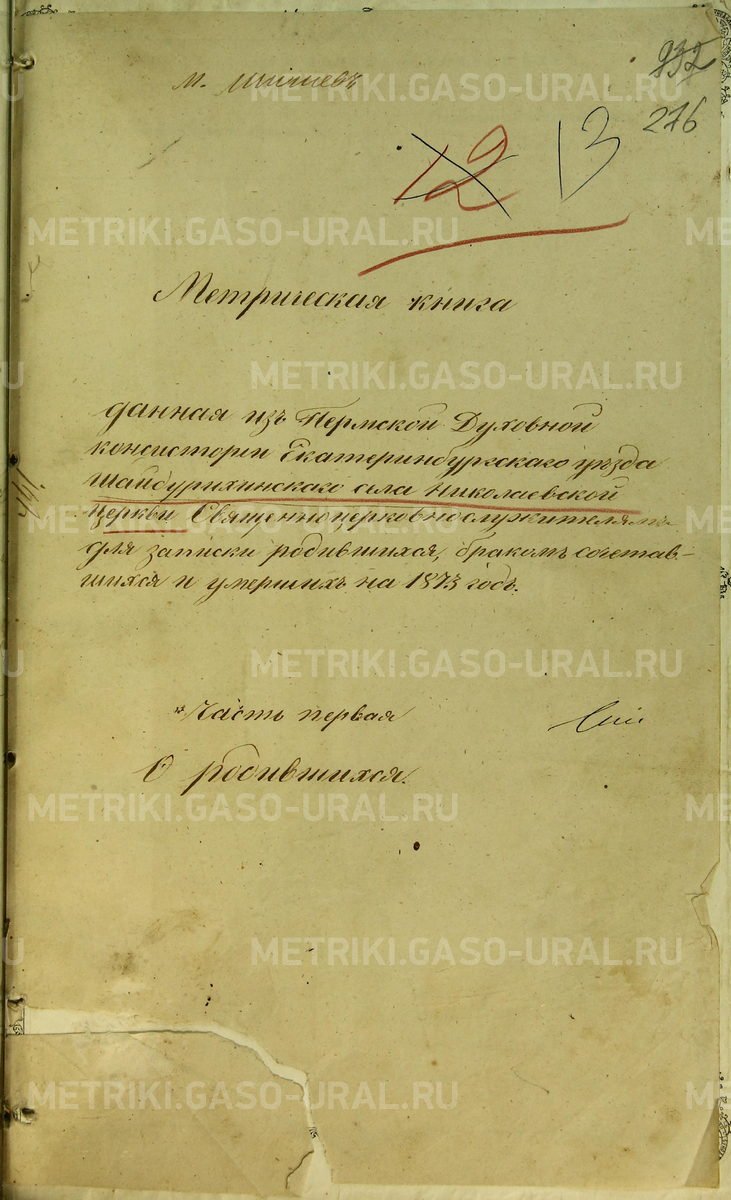 932
276
12 13
Метрическая книга
данная изъ Пермской Духовной
консисторіи Екатеринбургскаго уѣзда
Шайдурихинскаго села Николаевской
церкви Священноцерковнослужителямъ
для записки родившихся, бракомъ сочетав-
шихся и умершихъ на 1873 годъ.
Часть первая
О родившихся.
METRIKI.GASO-URAL.RU